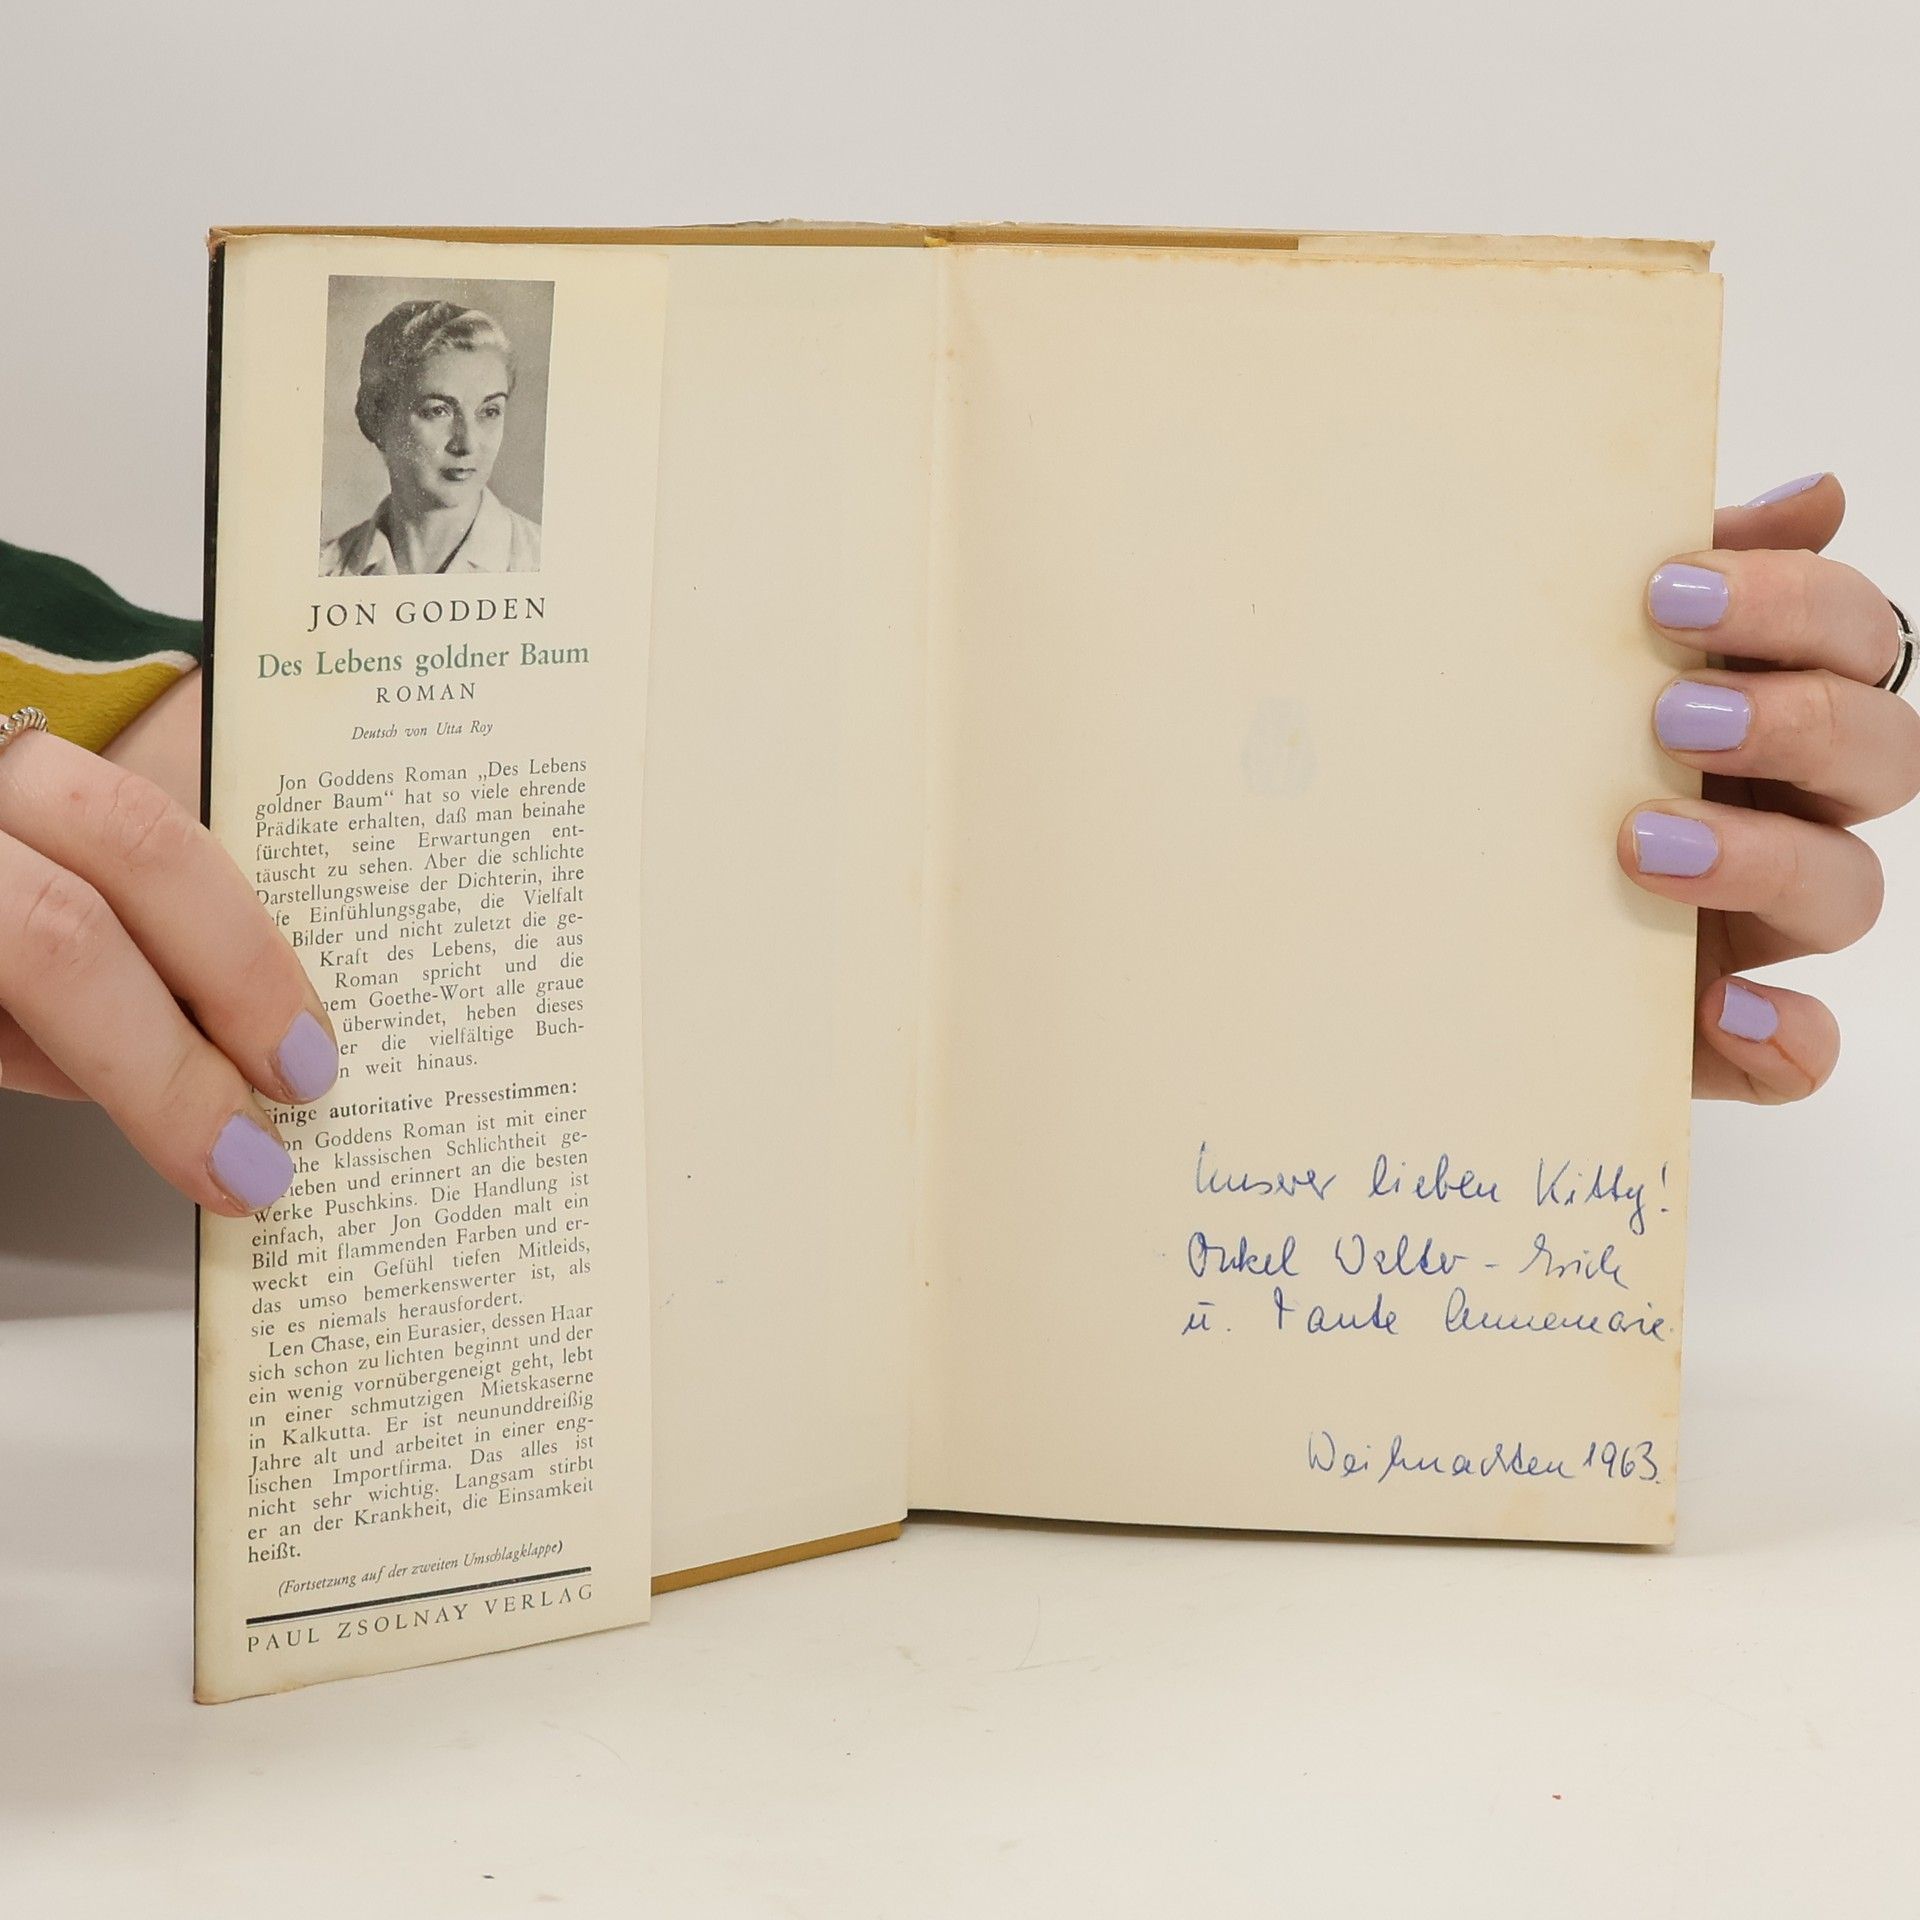 JON GODDEN
Des Lebens goldner Baum
ROMAN
Deutsch von Utta Roy
Jon Goddens Roman „Des Lebens
goldner Baum“ hat so viele ehrende
Prädikate erhalten, daß man beinahe
fürchtet, seine Erwartungen ent-
täuscht zu sehen. Aber die schlichte
Darstellungsweise der Dichterin, ihre
Einfühlungsgabe, die Vielfalt
Bilder und nicht zuletzt die ge-
Kraft des Lebens, die aus
Roman spricht und die
Goethe-Wort alle graue
überwindet, heben dieses
die vielfältige Buch-
weit hinaus.
Einige autoritative Pressestimmen:
Goddens Roman ist mit einer
klassischen Schlichtheit ge-
und erinnert an die besten
Werke Puschkins. Die Handlung ist
einfach, aber Jon Godden malt ein
Bild mit flammenden Farben und er-
weckt ein Gefühl tiefen Mitleids,
das umso bemerkenswerter ist, als
sie es niemals herausfordert.
Len Chase, ein Eurasier, dessen Haar
sich schon zu lichten beginnt und der
ein wenig vornübergeneigt geht, lebt
in einer schmutzigen Mietskaserne
in Kalkutta. Er ist neununddreißig
Jahre alt und arbeitet in einer eng-
lischen Importfirma. Das alles ist
nicht sehr wichtig. Langsam stirbt
er an der Krankheit, die Einsamkeit
heißt.
(Fortsetzung auf der zweiten Umschlagklappe)
PAUL ZSOLNAY VERLAG
Unserer lieben Kitty!
Onkel Walter - Erich
u. Tante Annemarie.
Weihnachten 1963.